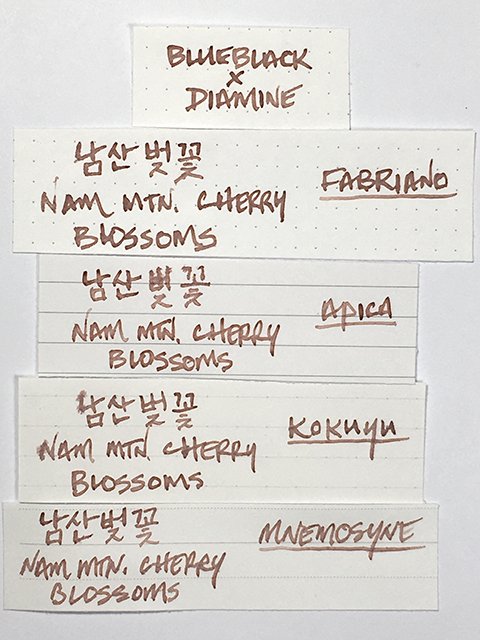 BLUEBLACK
X
DIAMINE
남산벚꽃
FABRIANO
NAM MTN. CHERRY
BLOSSOMS
남산벚꽃
APICA
NAM MTN. CHERRY
BLOSSOMS
남산벚꽃
KOKUYU
NAM MTN CHERRY
BLOSSOMS
남산벚꽃
MNEMOSYNE
NAM MTN. CHERRY
BLOSSOMS